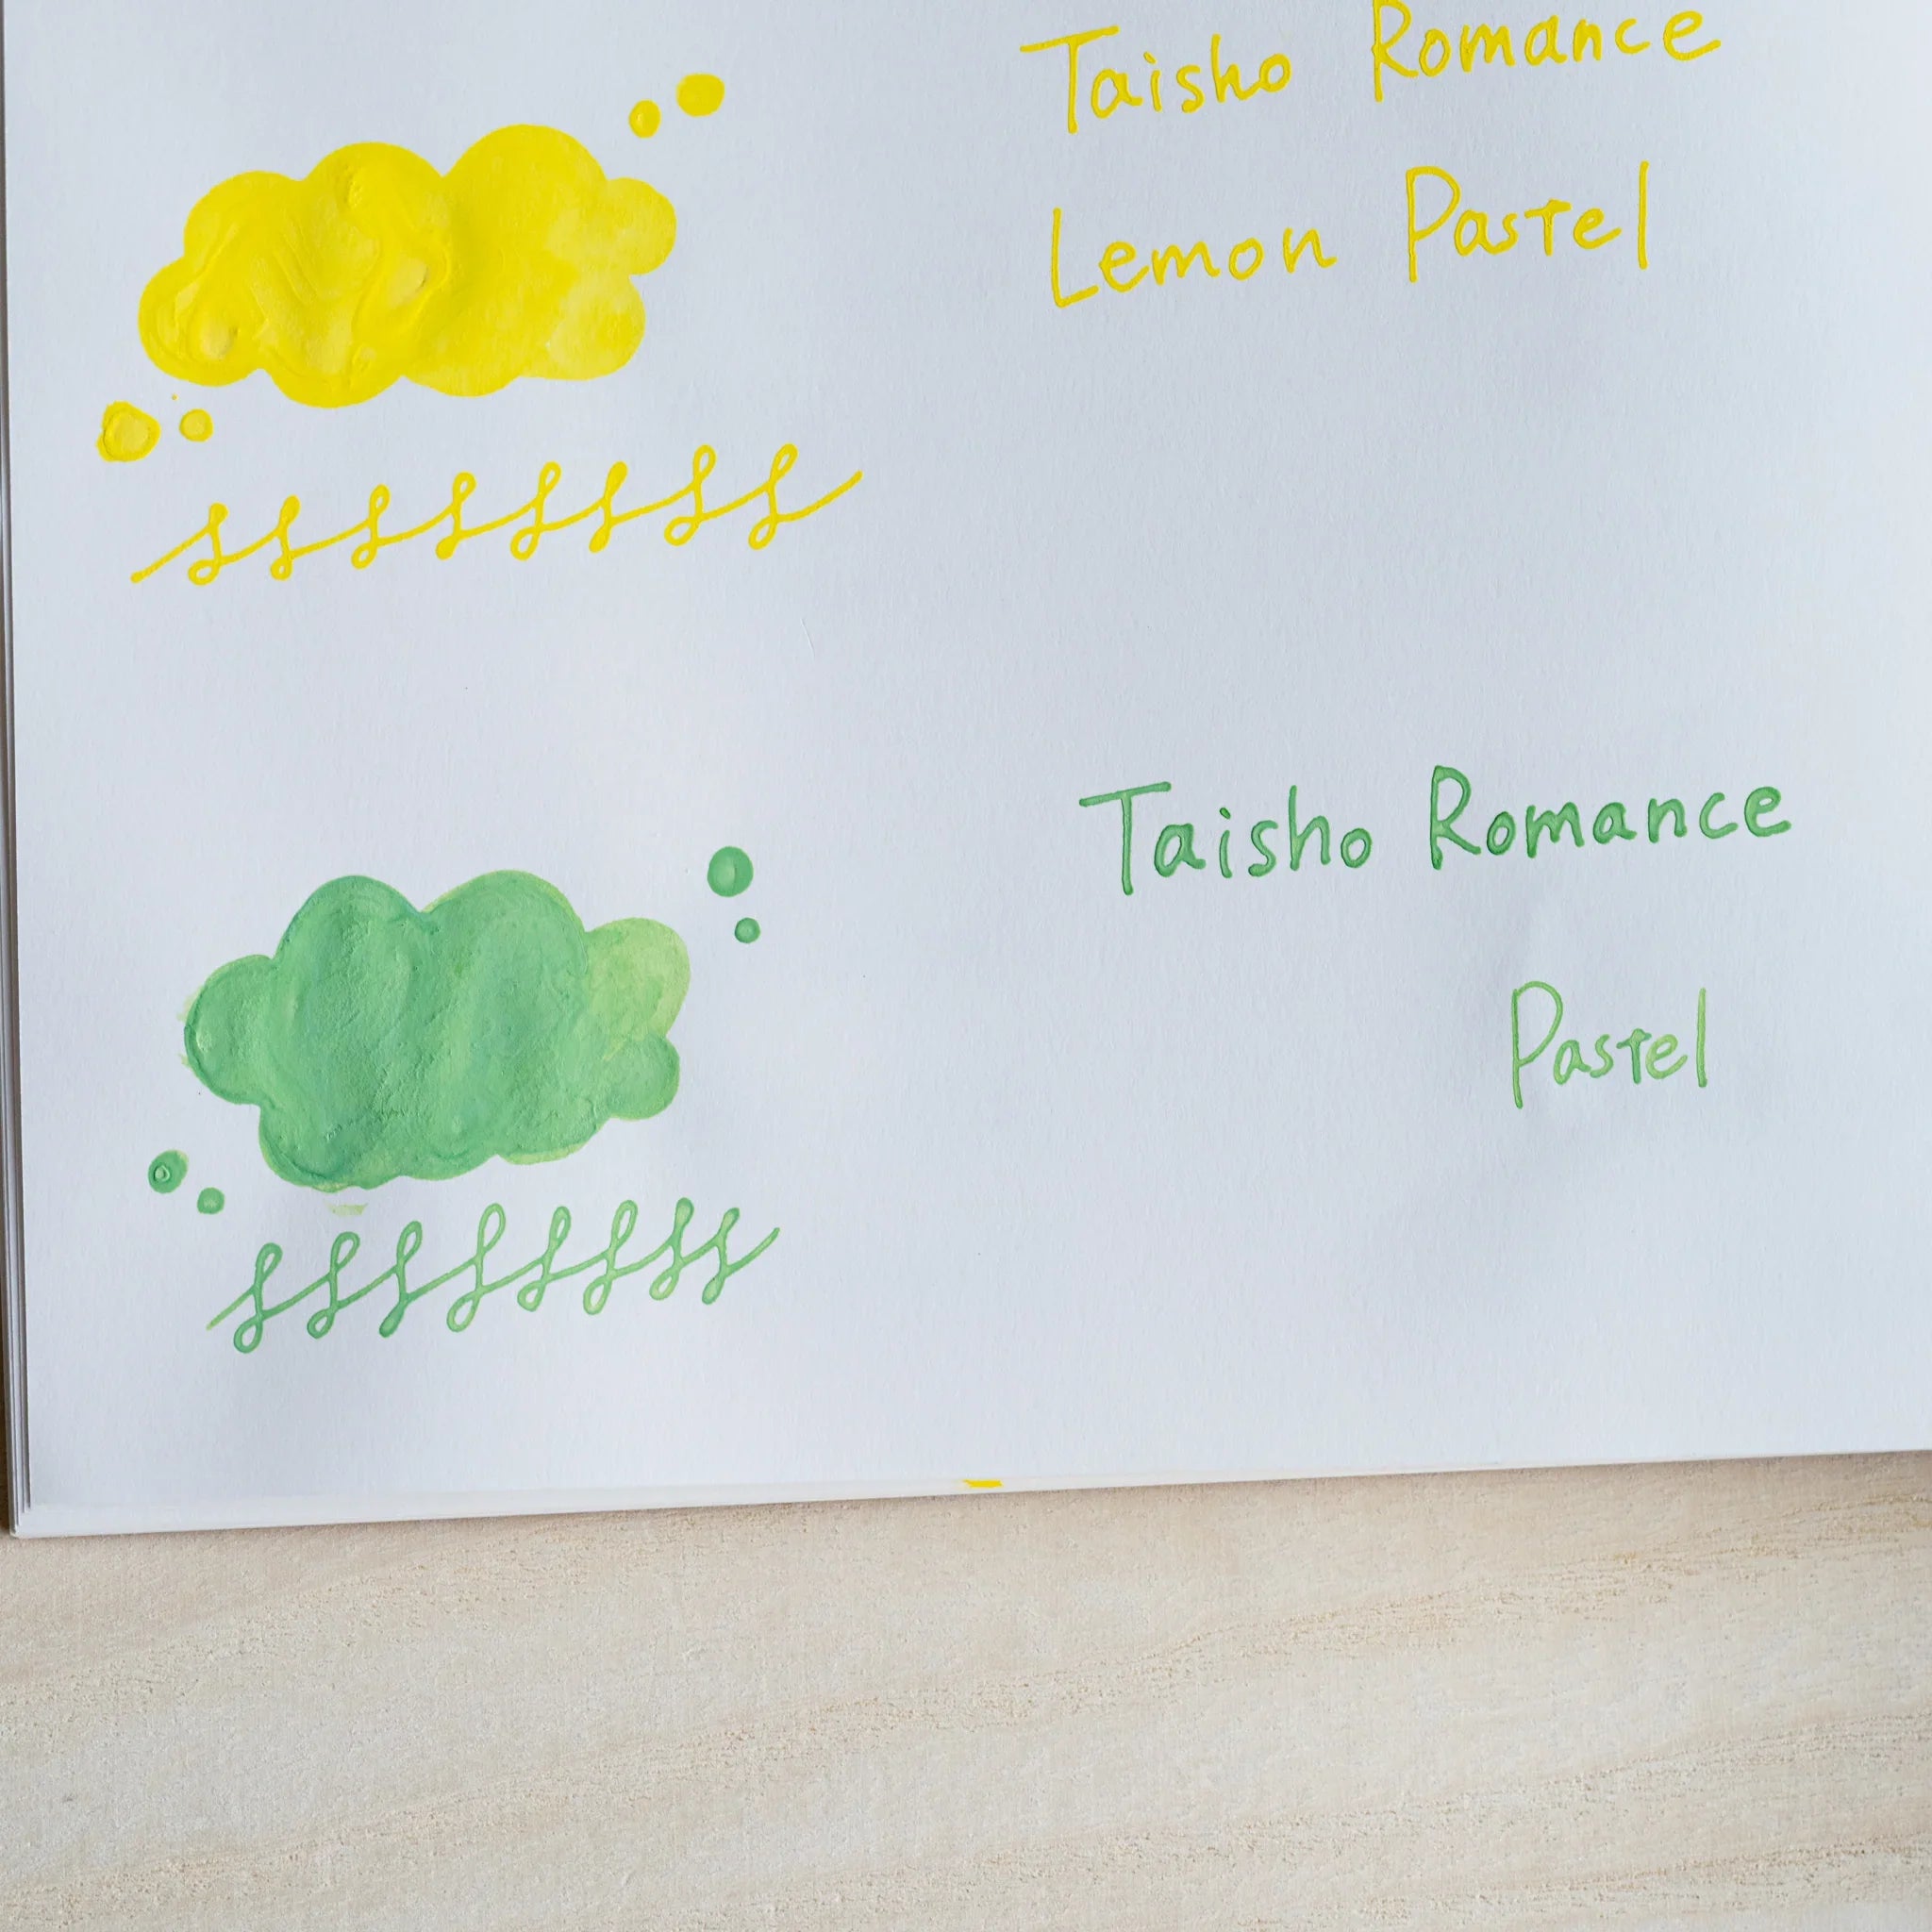 Taisho Romance
Lemon Pastel
Taisho Romance
Pastel